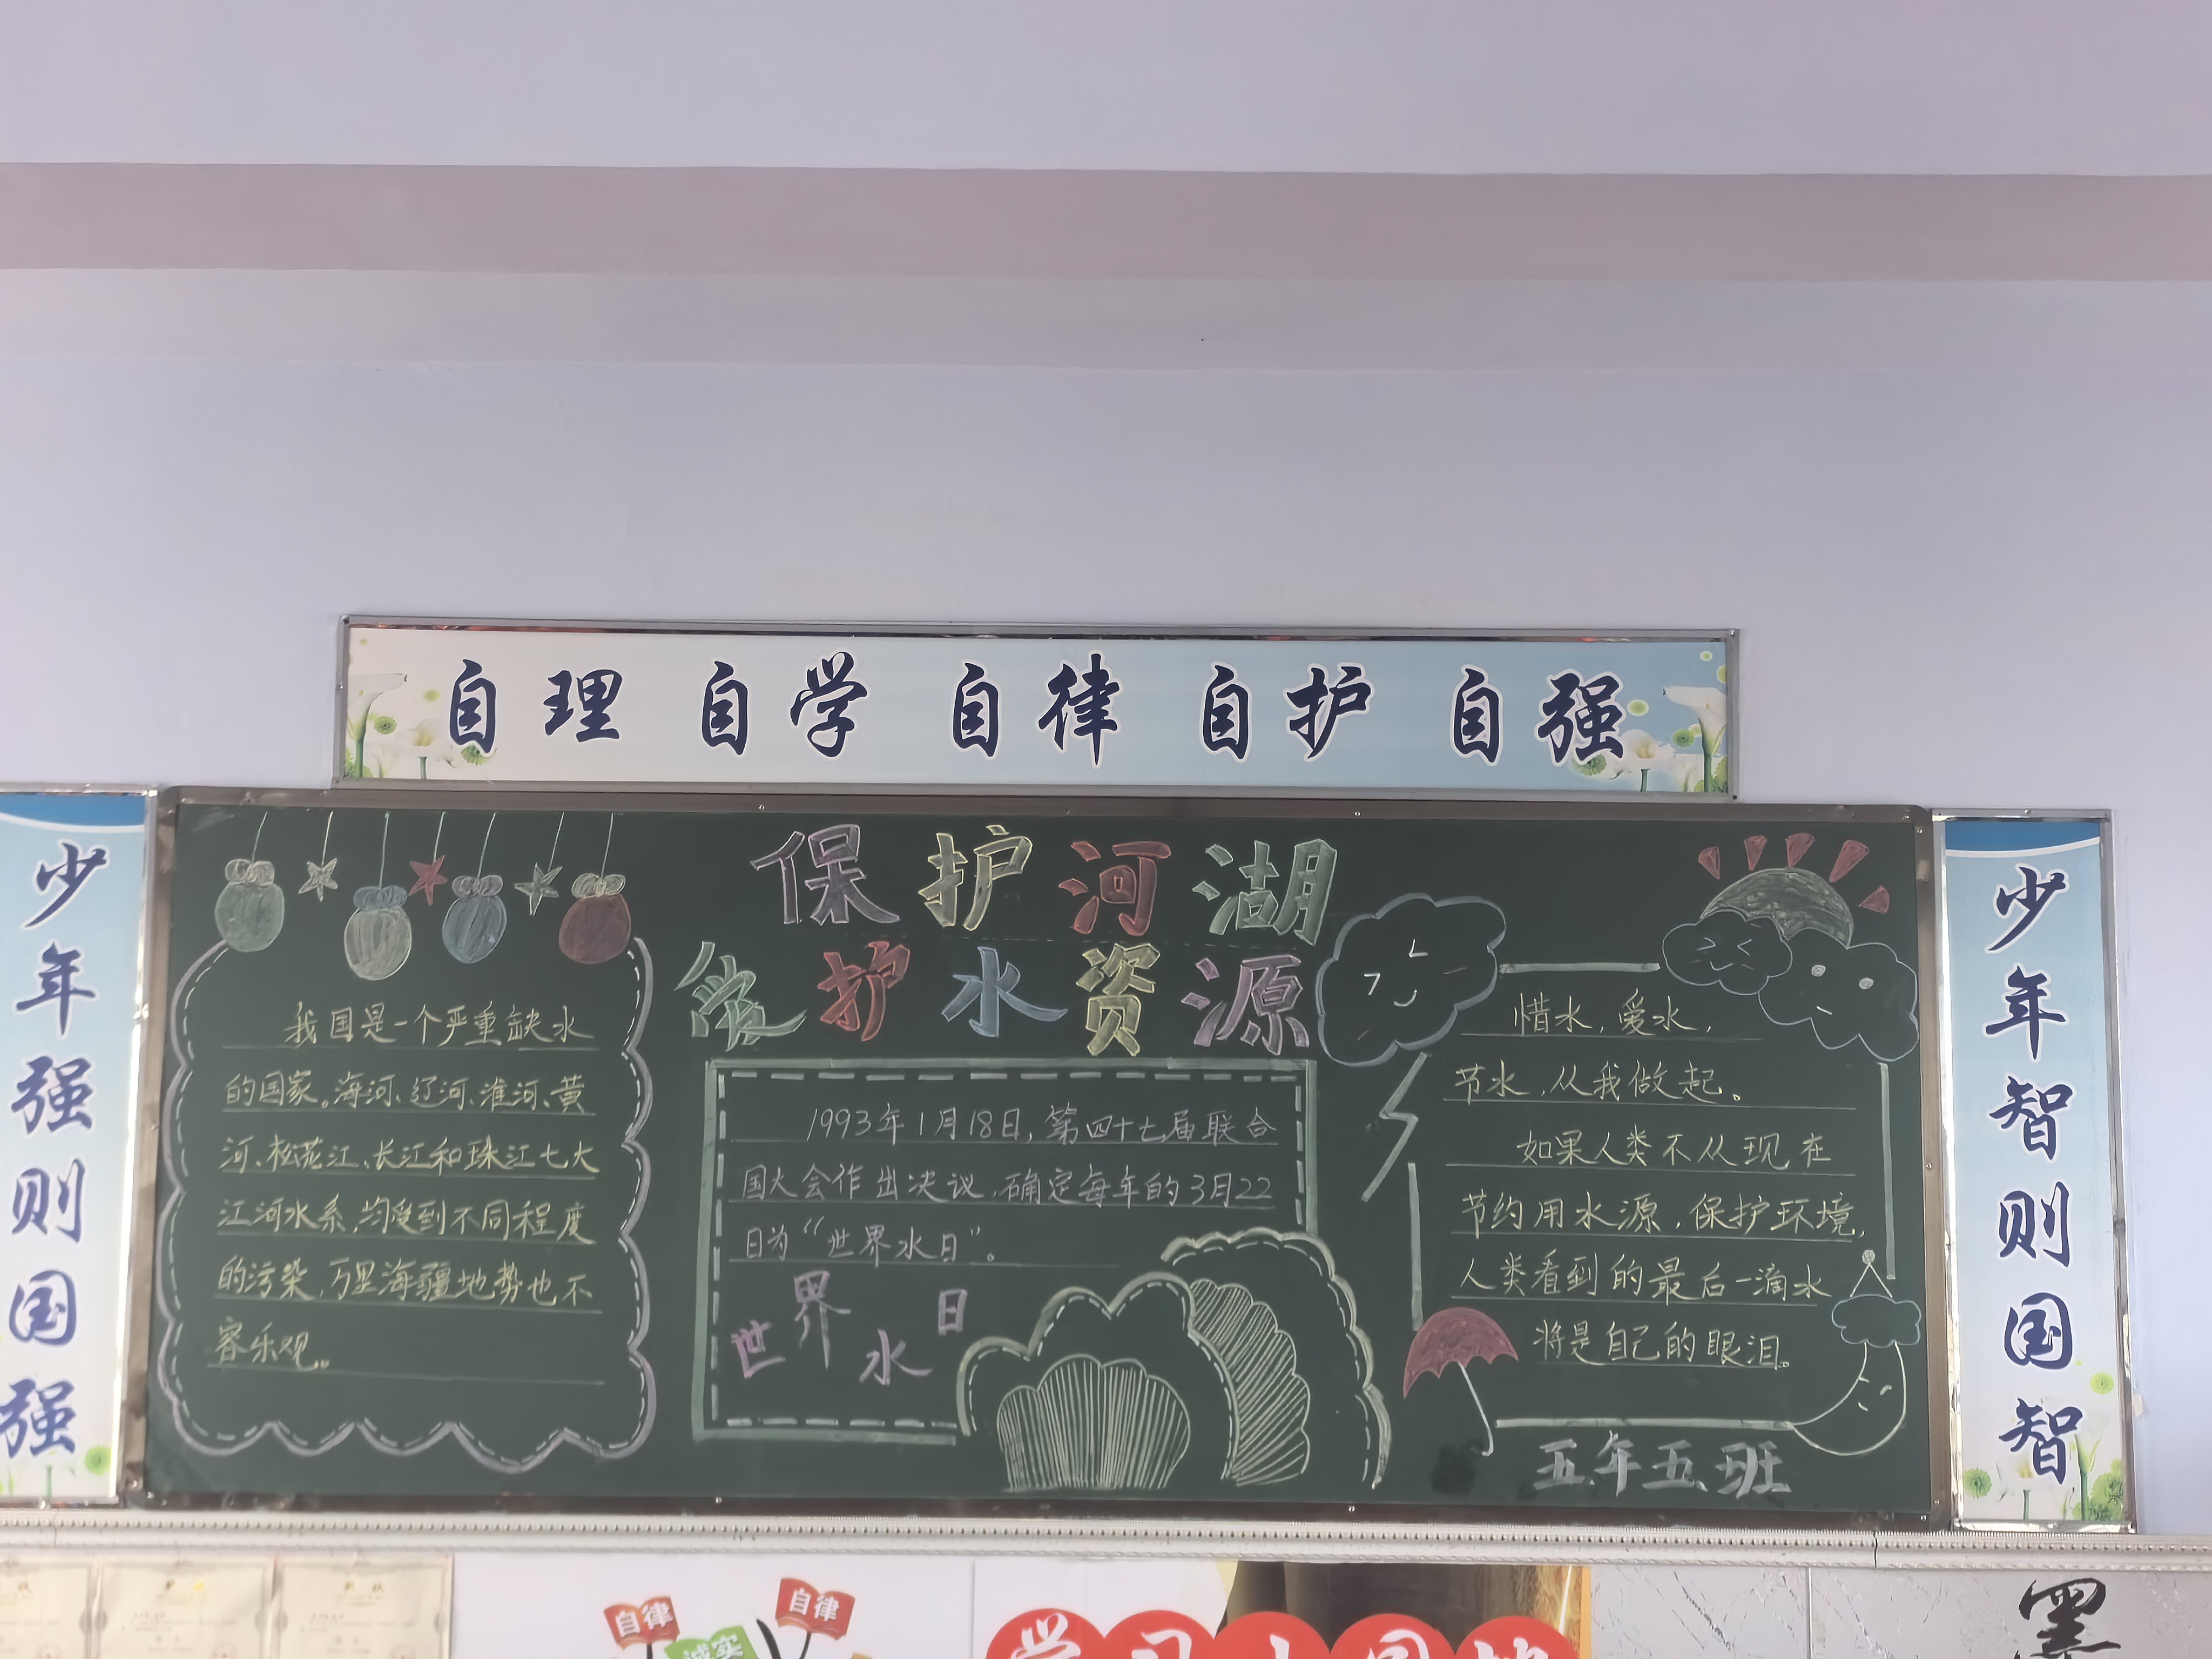 自理 自学 自律 自护 自强
少年强则国强
保护河湖
爱护水资源
我国是一个严重缺水
的国家。海河、辽河、淮河、黄
河、松花江、长江和珠江七大
江河水系,均受到不同程度
的污染,万里海疆地势也不
容乐观。
1993年1月18日,第四十七届联合
国大会作出决议,确定每年的3月22
日为“世界水日”。
世界水日
惜水,爱水,
节水,从我做起。
如果人类不从现在
节约用水源,保护环境,
人类看到的最后一滴水
将是自己的眼泪。
五年五班
少年智则国智
自律
自律
诚实